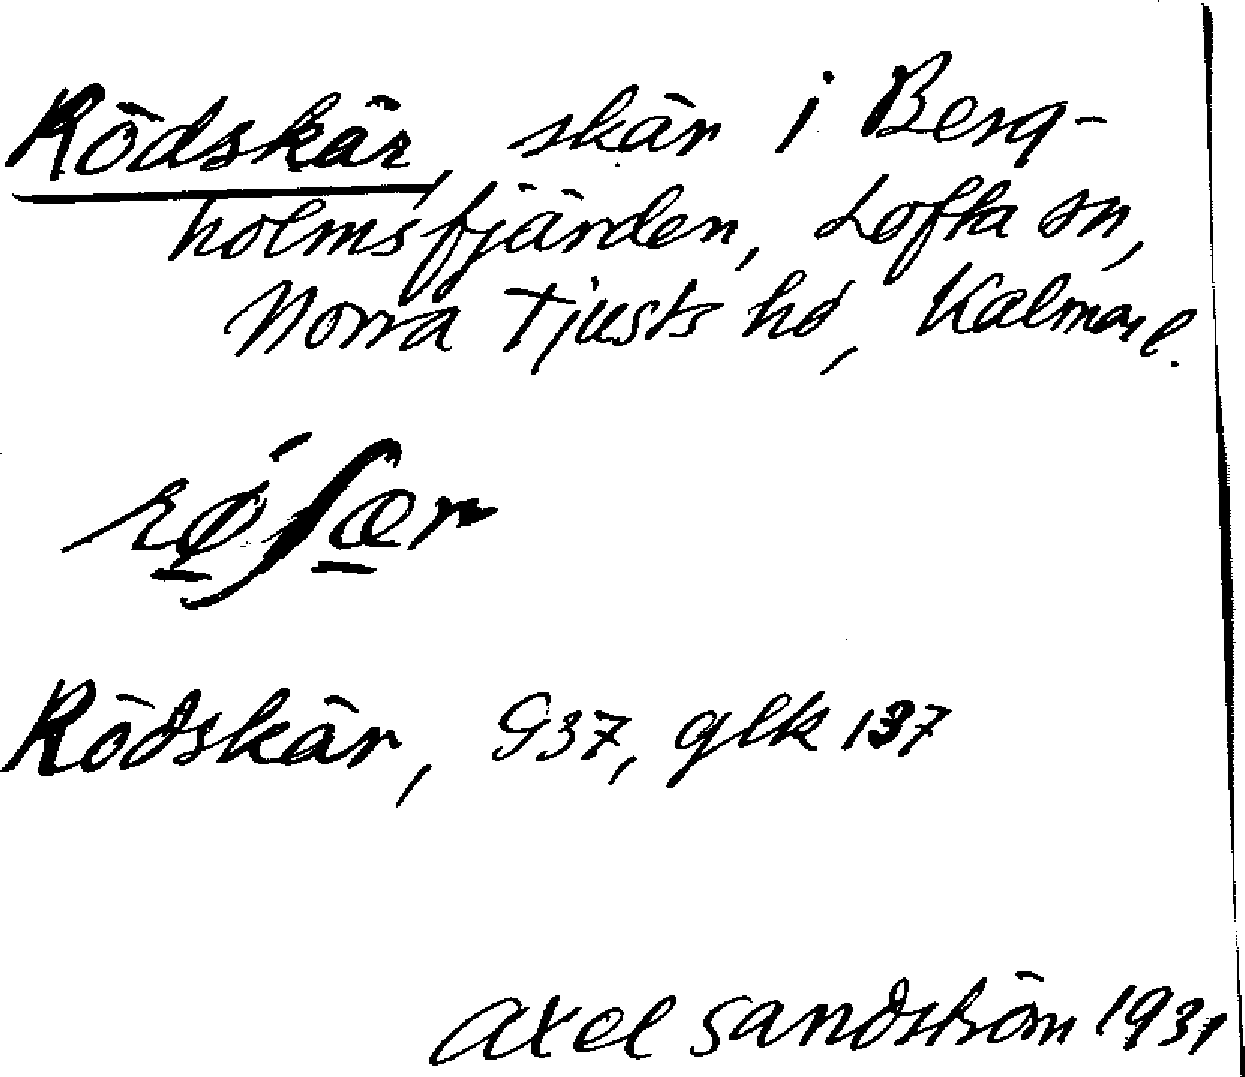 Rödskär, skär i Berg-
holmsfjärden, Lofta sn,
Norra Tjusts hd, Kalmar l.
rǿʃær
Rödskär, G37, glk 137
Axel Sandström 1931